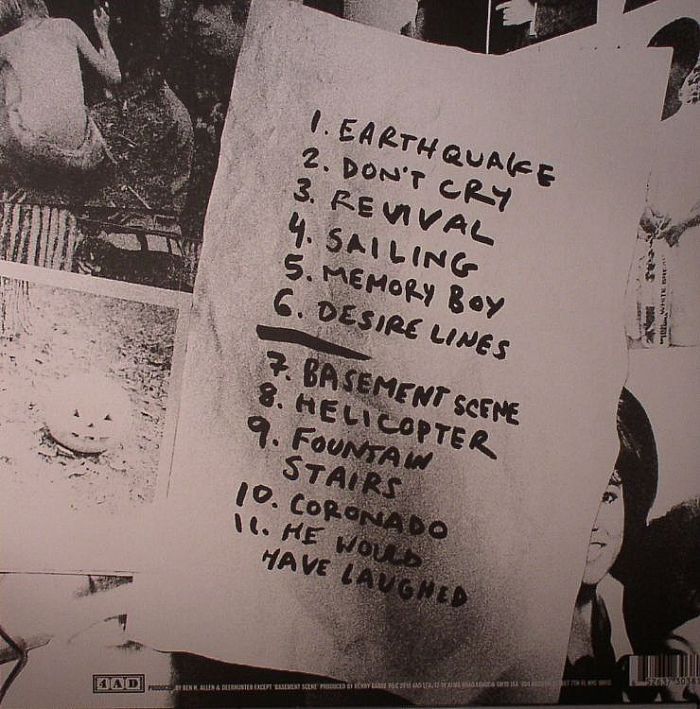 1. EARTHQUAKE
2. DON'T CRY
3. REVIVAL
4. SAILING
5. MEMORY BOY
6. DESIRE LINES
7. BASEMENT SCENE
8. HELICOPTER
9. FOUNTAIN
STAIRS
10. CORONADO
11. HE WOULD
HAVE LAUGHED
WHITE BREAD
4AD
PRODUCED BY BEN H. ALLEN & DEERHUNTER EXCEPT 'BASEMENT SCENE' PRODUCED BY HENRY